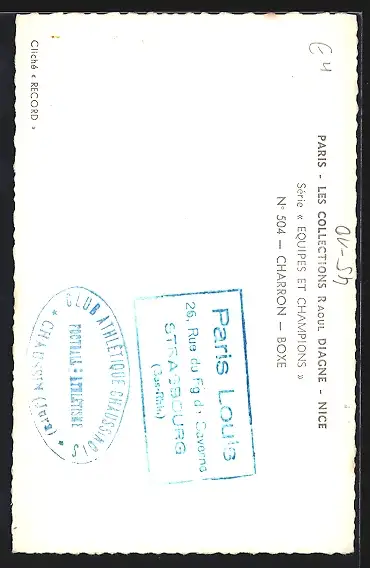 PARIS - LES COLLECTIONS RAOUL DIAGNE - NICE
Série « EQUIPES ET CHAMPIONS »
N° 504 — CHARRON — BOXE
Paris Louis
26, Rue du Fg de Saverne
STRASBOURG
(Bas-Rhin)
CLUB ATHLÉTIQUE CHAUSSINOIS
FOOTBALL - ATHLÉTISME
* CHAUSSIN (Jura) *
Cliché « RECORD »